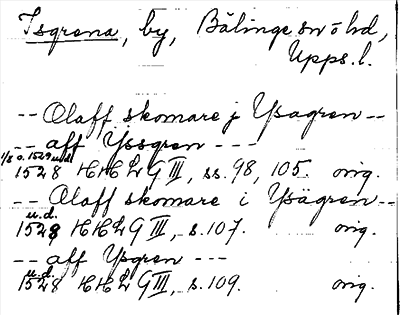 Isgrena, by, Bälinge sn o hd,
Upps. l.
-- Olaff skomare j Ysagren --
-- aff Yssgren ---
1/8 o. 1529 u.d.
1528 HH L G III, ss. 98, 105. orig.
-- Olaff skomare i Ysägren --
u.d.
1528 HH L G III, s. 107. orig.
-- aff Ysgren ---
u.d.
1528 HH L G III, s. 109. orig.